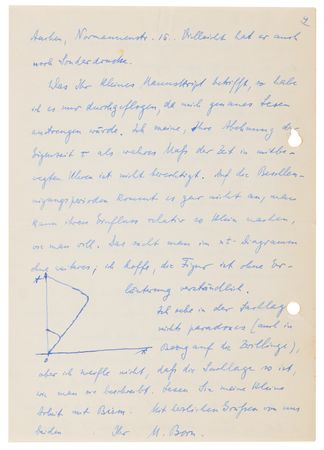 4
Aachen, Normannenstr. 15. Vielleicht hat er auch
noch Sonderdrucke.
Was Ihr kleines Manuskript betrifft, so habe
ich es nur durchgeflogen, da mich genaues Lesen
anstrengen würde. Ich meine, Ihre Ablehnung der
Eigenzeit τ als wahres Maß der Zeit in mitbe-
wegten Uhren ist nicht berechtigt. Auf die Beschleu-
nigungsperioden kommt es gar nicht an; man
kann ihren Einfluss relativ so klein machen,
wie man will. Das sieht man im xt-Diagramm
ohne weiteres; ich hoffe, die Figur ist ohne Er-
läuterung verständlich.
Ich sehe in der Sachlage
nichts paradoxes (auch in
Bezug auf die Zwillinge),
aber ich zweifle nicht, daß die Sachlage so ist,
wie man sie beschreibt. Lesen Sie meine kleine
Arbeit mit Biem. Mit herzlichen Grüßen von uns
beiden Ihr M. Born.
t
x
0